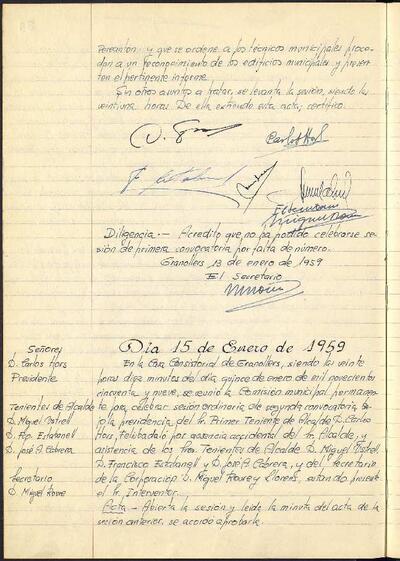 y que se ordene a los técnicos municipales proce-
dan a un reconocimiento de los edificios municipales y presen-
ten el pertinente informe.
Sin otros asuntos a tratar, se levanta la sesión, siendo las
veintiuna horas. De ella extiendo esta acta; certifico.
Carlos Hors
El Secretario
Diligencia.- Acredito que no ha podido celebrarse se-
sión de primera convocatoria por falta de número.
Granollers 13 de enero de 1959
El Secretario
Día 15 de Enero de 1959
Señores
D. Carlos Hors
Presidente
Tenientes de Alcalde
D. Miguel
D. Fco. Estabanell
D. José A. Cabrera
Secretario
D. Miguel Roure
En la Casa Consistorial de Granollers, siendo las veinte
horas diez minutos del día quince de enero de mil novecientos
cincuenta y nueve, se reunió la Comisión municipal permanen-
te para celebrar sesión ordinaria de segunda convocatoria bajo
la presidencia del Sr. Primer Teniente de Alcalde D. Carlos
Hors, por ausencia accidental del Sr. Alcalde, y
asistencia de los Sres. Tenientes de Alcalde D. Miguel
D. Francisco Estabanell y D. José A. Cabrera, y del Secretario
de la Corporación D. Miguel Roure y Llorens, estando presente
el Sr. Interventor.
Acta.- Abierta la sesión y leída la minuta del acta de la
sesión anterior, se acordó aprobarla.